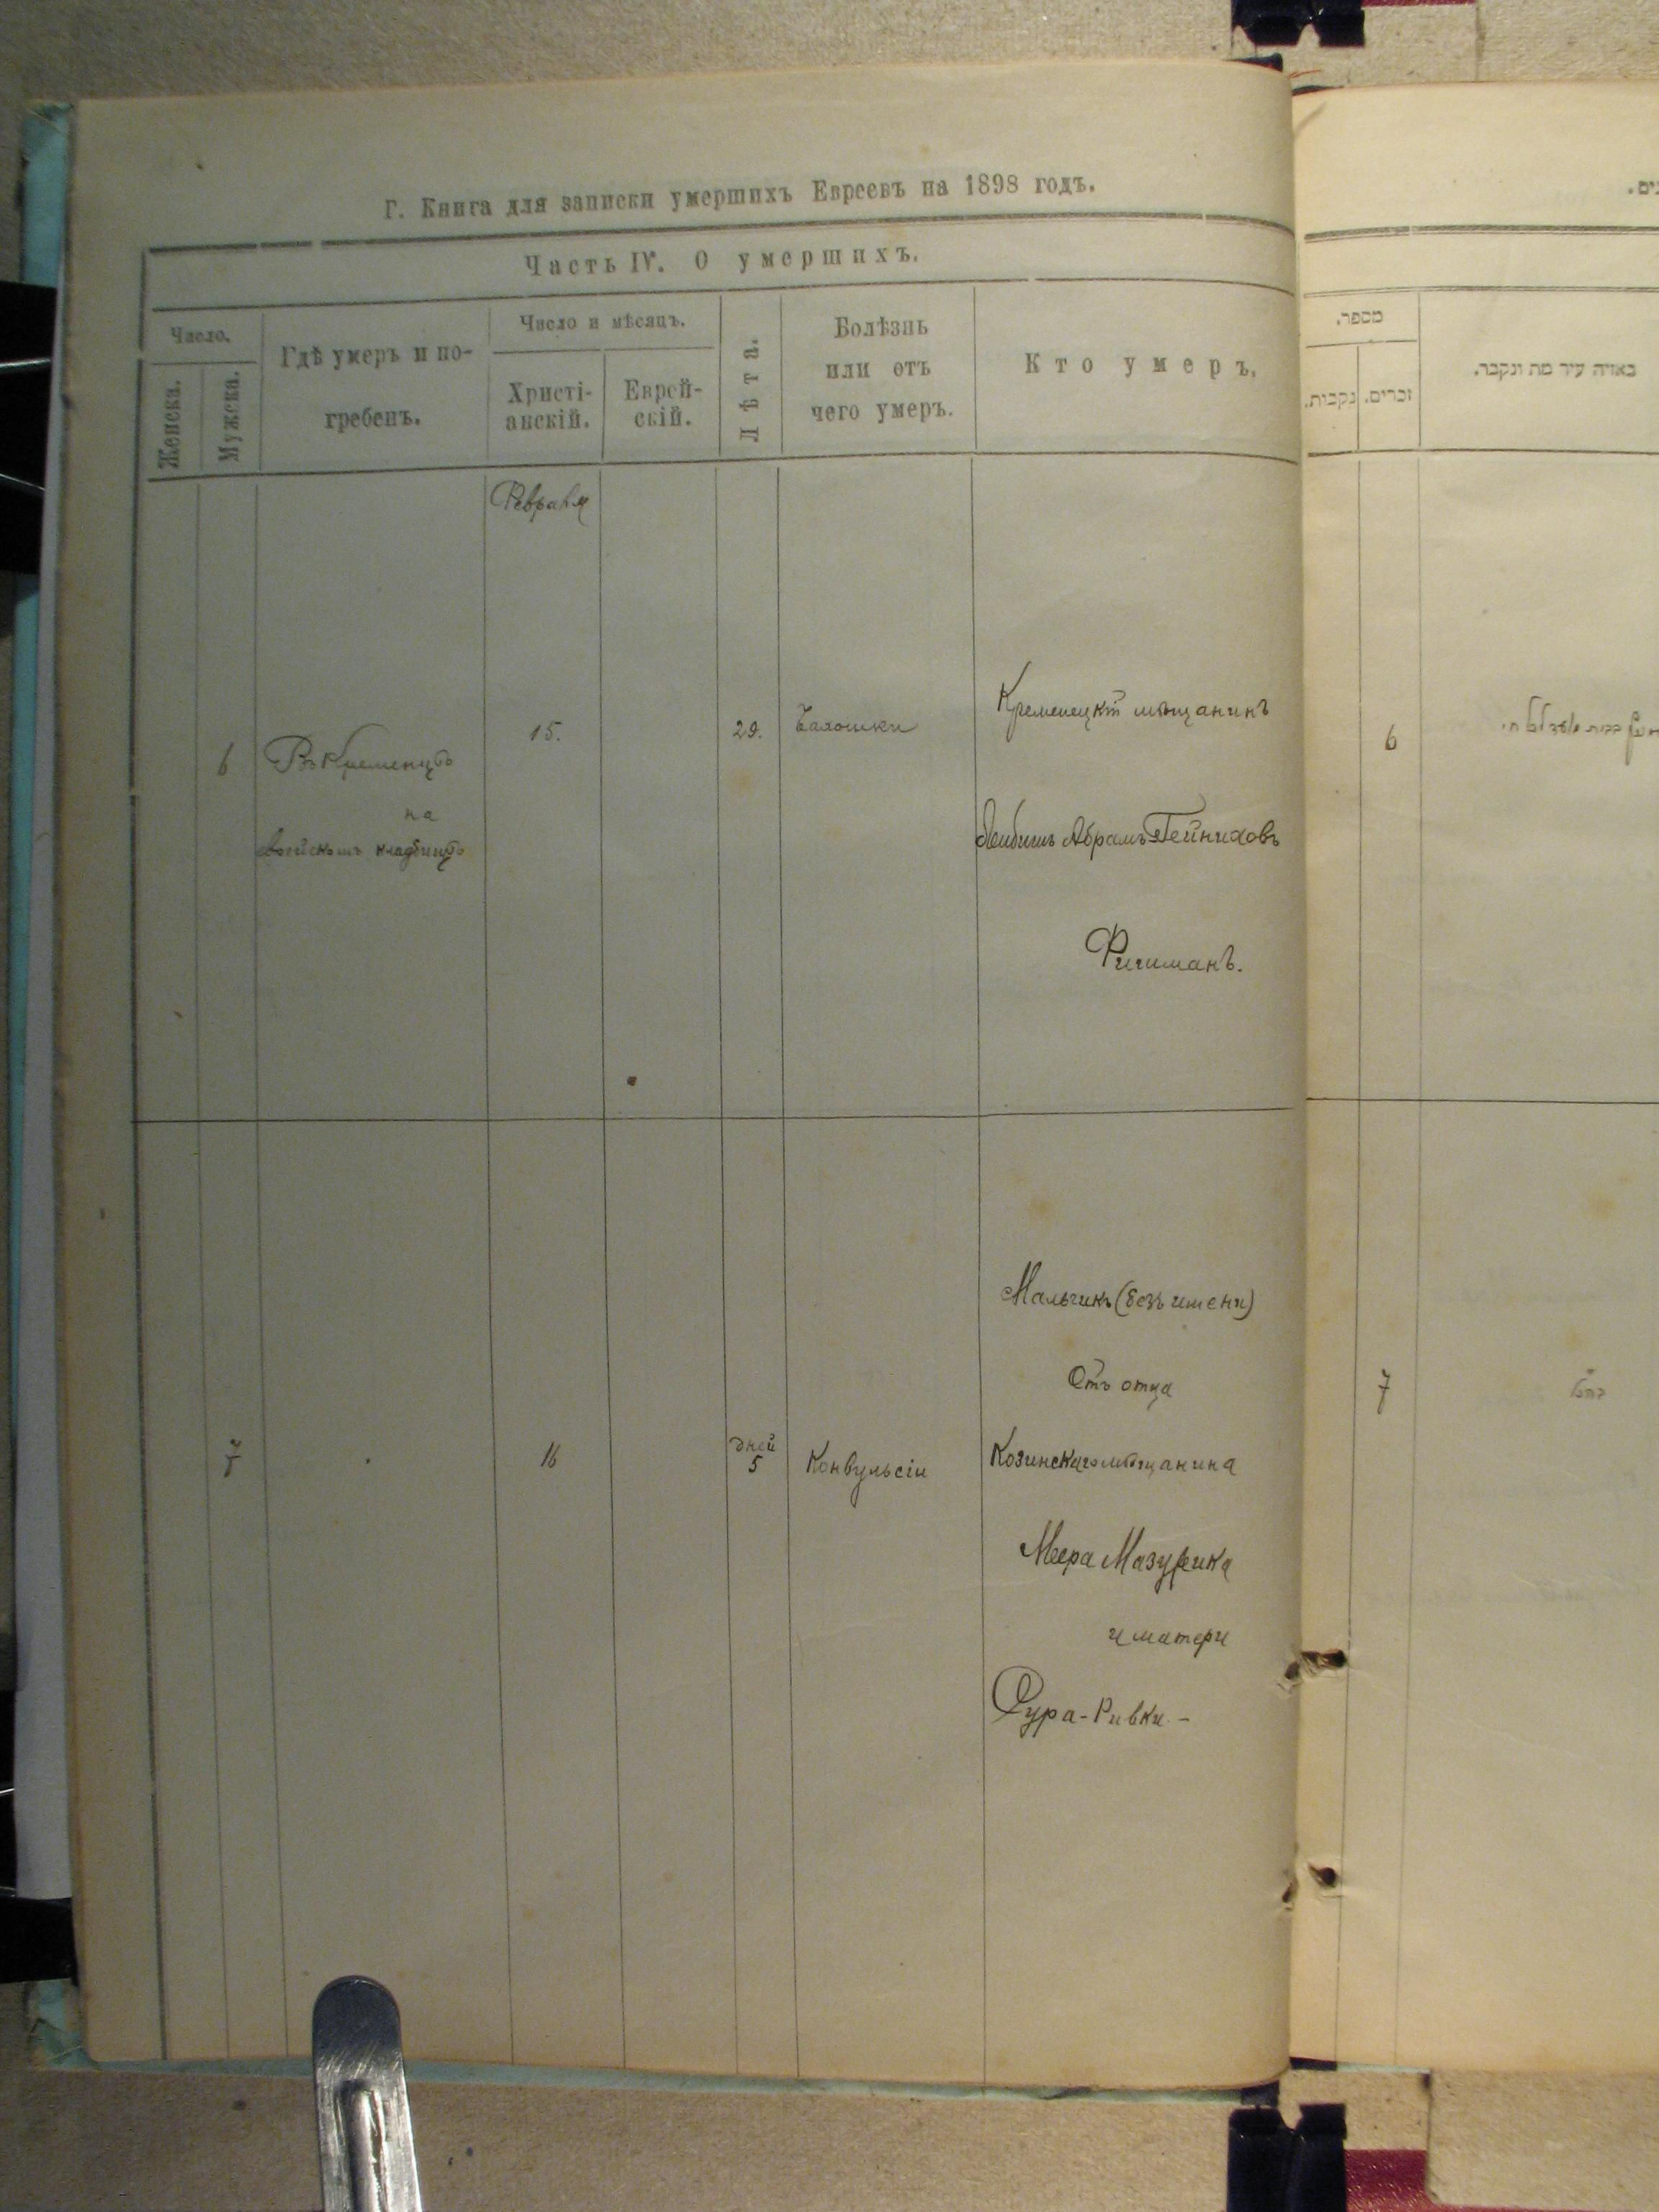 Г. Книга для записки умершихъ Евреевъ на 1898 годъ.
Часть IV. О умершихъ.
Число.
Женска.
Мужска.
Гдѣ умеръ и по-
гребенъ.
Число и мѣсяцъ.
Христі-
анскій.
Еврей-
скій.
Лѣта.
Болѣзнь
или отъ
чего умеръ.
Кто умеръ.
Февраля
6
Въ Кременцѣ
на
еврейскомъ кладбищѣ
15.
29.
Чахотки
Кременецкій мѣщанинъ
Лейбишъ Абрамъ-Гейниховъ
7
16
дней
5
Конвульсіи
Мальчикъ (безъ имени)
Отъ отца
Козинскаго мѣщанина
Меера Мазурика
и матери
Сура-Ривки -
מספר.
זכרים.
נקבות.
באיזה עיר מת ונקבר.
6
7